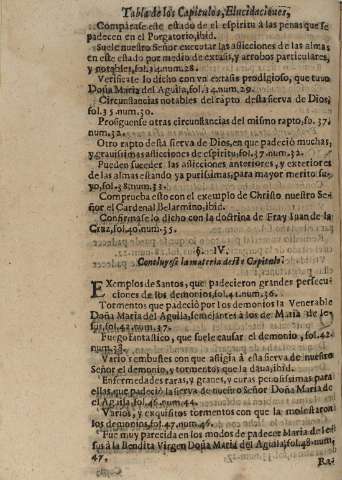 Tabla de los Capitulos, Elucidaciones,
Comparase este estado de el espiritu à las penas que se
padecen en el Purgatorio, ibid.
Suele nuestro Señor executar las aflicciones de las almas
en este estado por medio de extasis, y arrobos particulares,
y notables, fol. 34. num. 28.
Verificase lo dicho con vn extasis prodigioso, que tuuo
Doña Maria del Aguila, fol. 34. num. 29.
Circunstancias notables del rapto desta sierva de Dios,
fol. 35. num. 30.
Prosiguense otras circunstancias del mismo rapto, fo. 37.
num. 32.
Otro rapto desta sierva de Dios, en que padeciò muchas,
y grauissimas aflicciones de espiritu, fol. 37. num. 32.
Pueden suceder las aflicciones anteriores, y exteriores
de las almas estando ya purissimas, para mayor merito su-
yo, fol. 38. num. 33.
Comprueba esto con el exemplo de Christo nuestro Se-
ñor el Cardenal Belarmino, ibid.
Confirmase lo dicho con la doctrina de Fray Iuan de la
Cruz, fol. 40. num. 35.
§. IV.
Concluyese la materia deste Capitulo.
EXemplos de Santos, que padecieron grandes persecu-
ciones de los demonios, fol. 41. num. 36.
Tormentos que padeciò por los demonios la Venerable
Doña Maria del Aguila, semejantes à los de Maria de Je-
sus, fol. 42. num. 37.
Fuego fantastico, que suele causar el demonio, fol. 42.
num. 38.
Varios embustes con que afligia à esta sierva de nuestro
Señor el demonio, y tormentos que la daua, ibid.
Enfermedades raras, y graues, y curas penosissimas para
ellas, que padeciò la sierva de nuestro Señor Doña Maria de
el Aguila, fol. 46. num. 44.
Varios, y exquisitos tormentos con que la molestaron
los demonios, fol. 47. num. 46.
Fue muy parecida en los modos de padecer Maria de Je-
sus à la Bendita Virgen Doña Maria del Aguila, fol. 48. num,
47.
Ra-